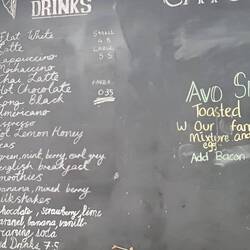 DRINKS
Flat White
SMALL
4.8
Latte
LARGE
5.5
Cappuccino
Mochaccino
Chai Latte
Hot Chocolate
0.35
Long Black
Americano
Espresso
Hot Lemon Honey
Teas
green, mint, berry, earl grey
english breakfast
Smoothies
banana, mixed berry
Milkshakes
chocolate, strawberry, lime
caramel, banana, vanilla
soda
Drinks 7.5
AVO
Toasted
W Our
Mixture and
egg
Add Bacon